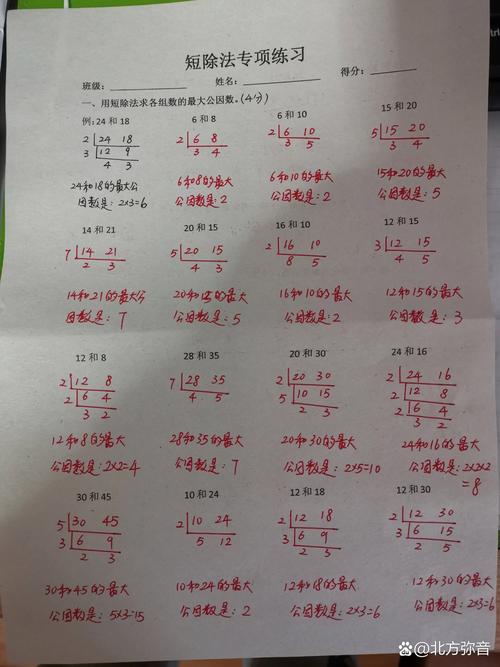 短除法专项练习
班级： 姓名： 得分：
一、用短除法求各组数的最大公因数。(4分)
例：24 和 18 6 和 8 6 和 10 15 和 20
2 24 18 2 6 8 2 6 10 5 15 20
3 12 9 3 4 3 5 3 4
4 3
24和18的最大公 6和8的最大 6和10的最大 15和20的最大
因数是：2×3=6 公因数是：2 公因数是：2 公因数是：5
14 和 21 20 和 15 16 和 10 12 和 15
7 14 21 5 20 15 2 16 10 3 12 15
2 3 4 3 8 5 4 5
14和21的最大公 20和15的最大 16和10的最大 12和15的最大
因数是：7 公因数是：5 公因数是：2 公因数是：3
12 和 8 28 和 35 20 和 30 24 和 16
2 12 8 7 28 35 2 20 30 2 24 16
2 6 4 4 5 5 10 15 2 12 8
3 2 2 3 2 6 4
3 2
12和8的最大 28和35的最大 20和30的最大 24和16的最大
公因数是：2×2=4 公因数是：7 公因数是：2×5=10 公因数是：2×2×2
=8
30 和 45 10 和 24 12 和 18 12 和 30
5 30 45 2 10 24 2 12 18 2 12 30
3 6 9 5 12 3 6 9 3 6 15
2 3 2 3 2 5
30和45的最大 10和24的最大 12和18的最大 12和30的最大
公因数是：5×3=15 公因数是：2 公因数是：2×3=6 公因数是：2×3=6
@北方弥音